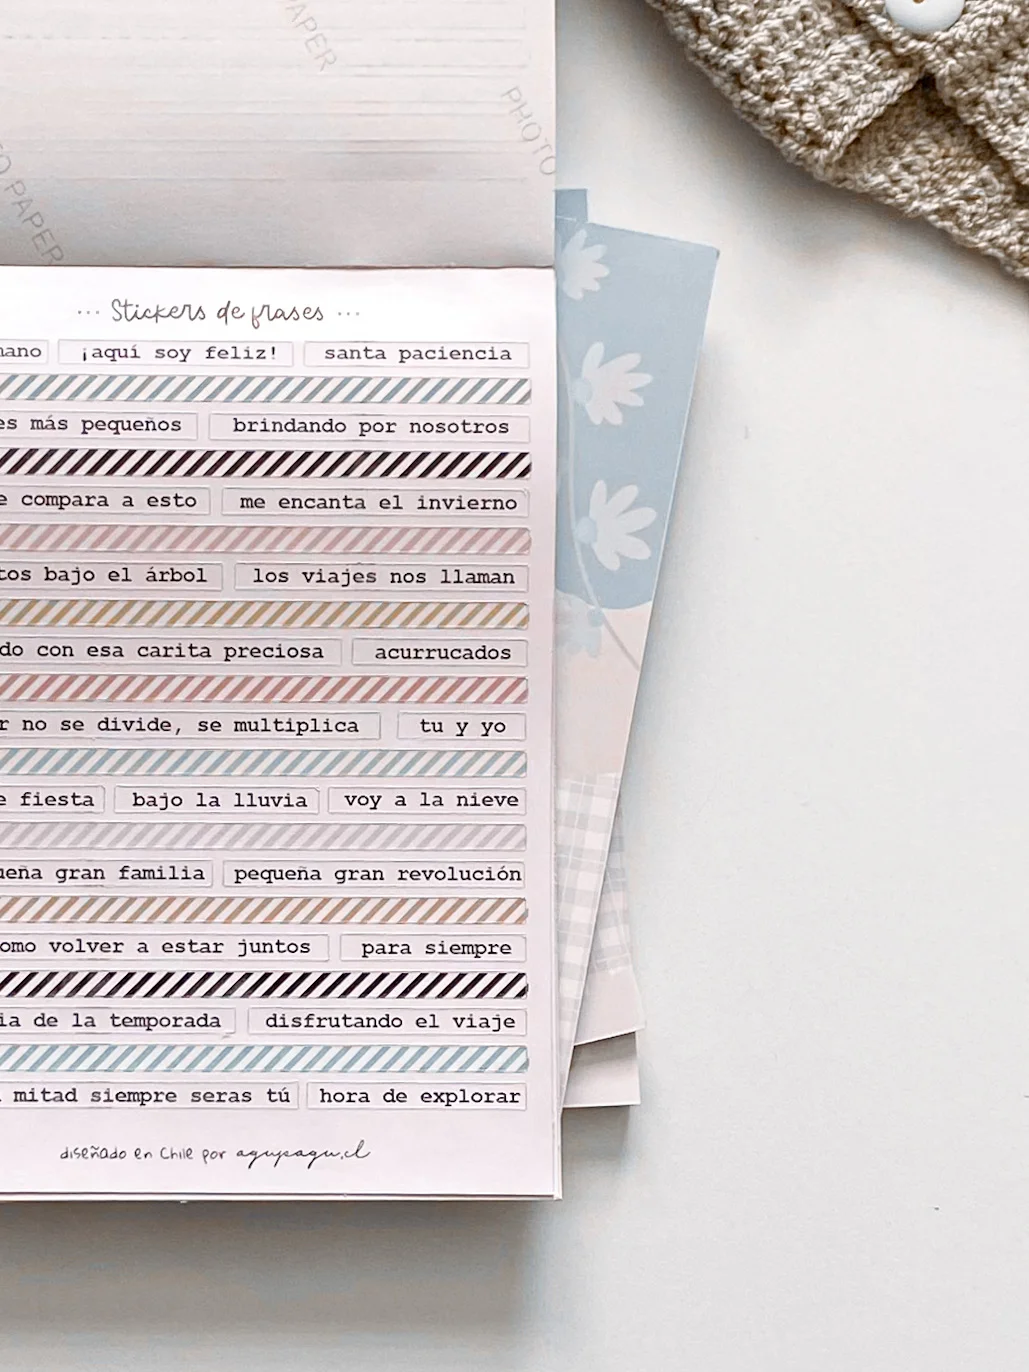 PAPER
PHOTO
PAPER
··· Stickers de frases ···
¡aquí soy feliz! santa paciencia
más pequeños brindando por nosotros
compara a esto me encanta el invierno
bajo el árbol los viajes nos llaman
con esa carita preciosa acurrucados
no se divide, se multiplica tu y yo
fiesta bajo la lluvia voy a la nieve
gran familia pequeña gran revolución
volver a estar juntos para siempre
de la temporada disfrutando el viaje
mitad siempre seras tú hora de explorar
diseñado en Chile por agupagu.cl